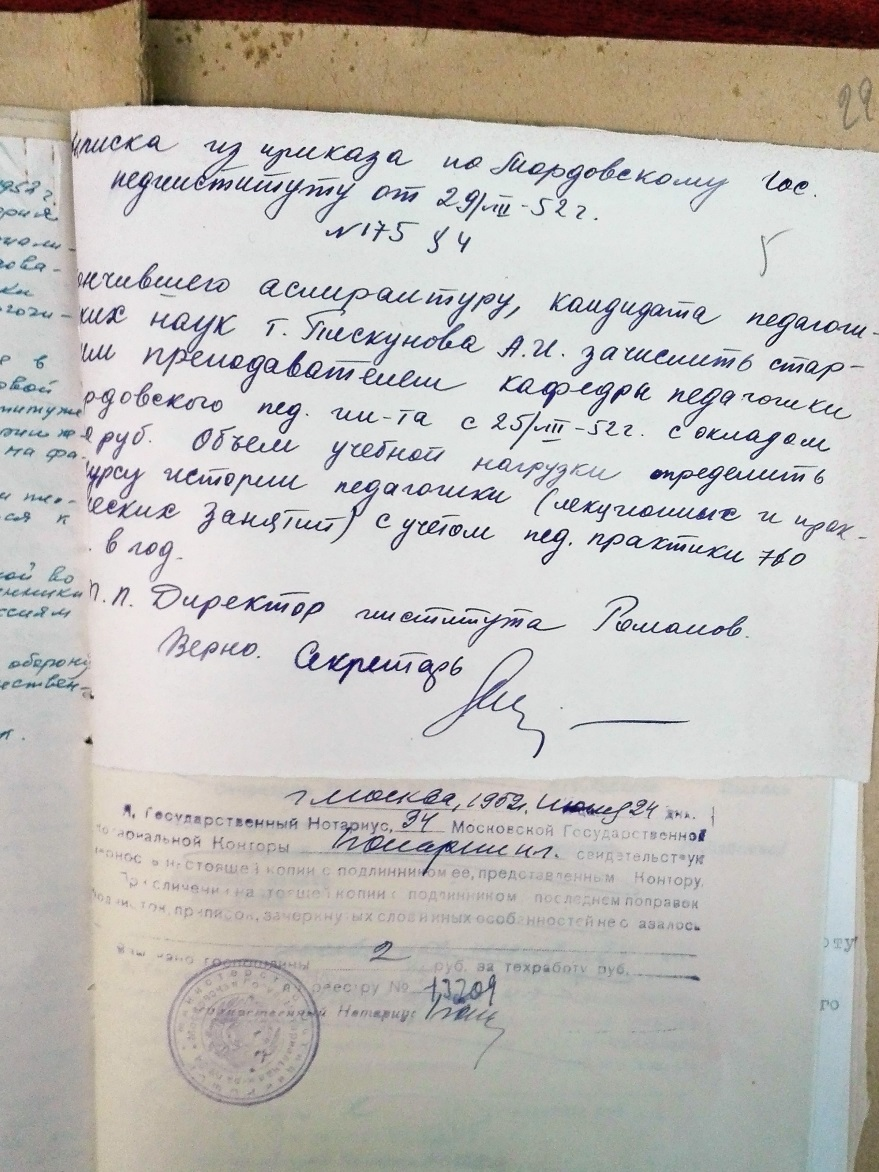 22
Выписка из приказа по Мордовскому Гос.
пединституту от 29/VIII-52 г.
№175 § 4
5
ончившего аспирантуру, кандидата педагоги-
ких наук т. Пискунова А.И. зачислить стар-
им преподавателем кафедры педагогики
рдовского пед. ин-та с 25/VIII-52г. с окладом
руб. Объем учебной нагрузки определить
урсу истории педагогики (лекционных и прак-
ческих занятий) с учётом пед. практики 760
. в год.
П.П. Директор института Романов.
Верно. Секретарь
г Москва, 1952г. 24 дня.
Я, Государственный Нотариус, 34 Московской Государственной
Нотариальной Конторы свидетельствую
настоящей копии с подлинником ее, представленным Контору,
При сличении настоящей копии с подлинником последнем поправок
подчисток, приписок, зачеркнутых слов и иных особенностей не оказалось
Взыскано госпошлины 2 руб. за техработу руб.
реестру № 13209
Государственный Нотариус
1952г.
ория
ова-
ки
в
овой
титуте
на фа-
ся к
ой во
ссиям
оборону
ествен-
оту
го